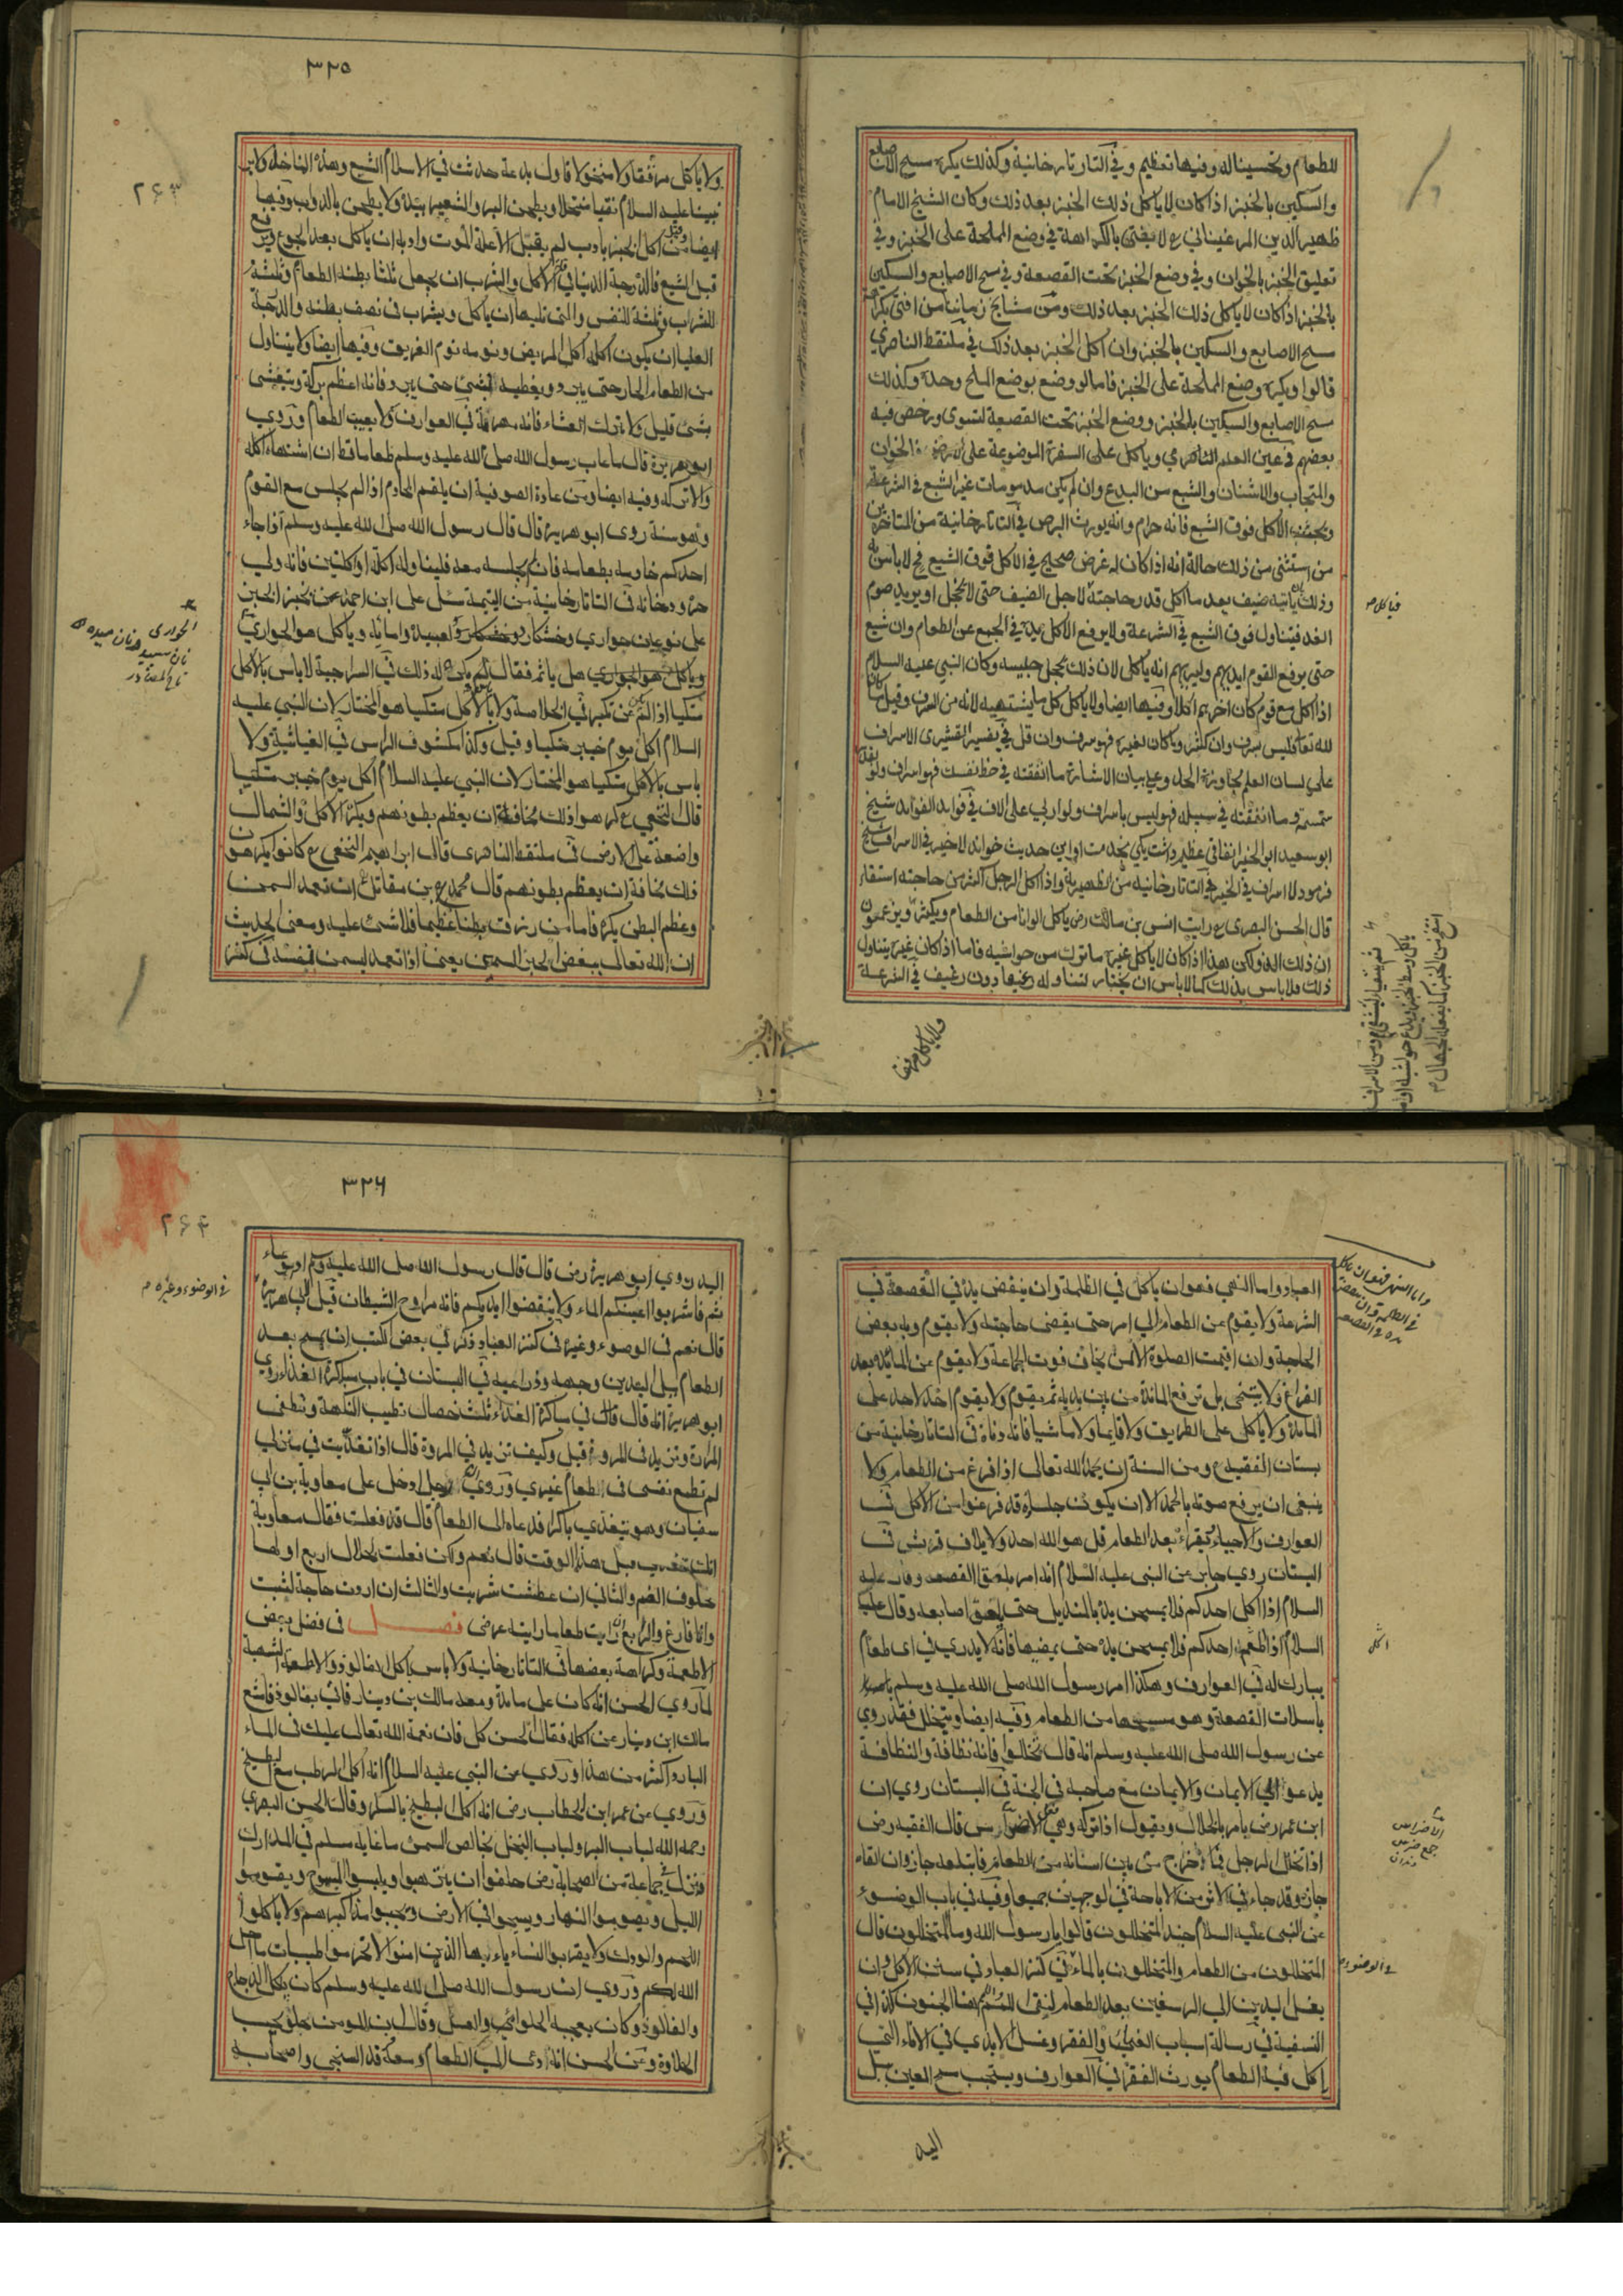 للطعام وتحسينا له وفيها تعظيم وفي التاتارخانية وكذلك يكره مسح الاصابع
والسكين بالخبز اذا كان لا ياكل ذلك الخبز بعد ذلك وكان الشيخ الامام
ظهير الدين المرغيناني ع لا يفتى بالكراهة في وضع المملحة على الخبز وفي
تعليق الخبز بالخوان وفي وضع الخبز تحت القصعة وفي مسح الاصابع والسكين
بالخبز اذا كان لا ياكل ذلك الخبز بعد ذلك ومن مشايخ زماننا من افتى بكراهة
مسح الاصابع والسكين بالخبز وان اكل الخبز بعد ذلك في ملتقط الناصري
قالوا ويكره وضع المملحة على الخبز فاما لو وضع بوضع الملح وحده وكذلك
مسح الاصابع والسكين بالخبز ووضع الخبز تحت القصعة لتسوى ورخص فيه
بعضهم في عين العلم الظاهري وياكل على السفرة الموضوعة على الارض والخوان
والمنخل والاشنان والشبع من البدع وان لم يكن مذمومات غير الشبع في الشرعة
ويجتنب الاكل فوق الشبع فانه حرام وانه يورث البرص في التاتارخانية من المتاخرين
من استثنى من ذلك حالة انه اذا كان له غرض صحيح في الاكل فوق الشبع فح لا باس به
وذلك بان ياتيه ضيف بعد ما اكل قدر حاجته لاجل الضيف حتى لا يخجل او يريد صوم
الغد فيتناول فوق الشبع في الشرعة ولا يرفع الاكل يده في الجمع عن الطعام وان شبع
حتى يرفع القوم ايديهم وليريهم انه ياكل لان ذلك يخجل جليسه وكان النبي عليه السلام
اذا اكل مع قوم كان اخرهم اكلا وفيها ايضا ولا ياكل كل ما يشتهيه لانه من السرف وقيل ما كان
لله تعالى فليس بسرف وان كثر وما كان لغيره فهو سرف وان قل في تفسير القشيري الاسراف
على لسان العلم مجاوزة الحد وعلى بيان الاشارة ما انفقته في حظ نفسك فهو اسراف ولو بقدر
سمسمة وما انفقته في سبيله فهو ليس باسراف ولو اربى على الالاف في فوايد الفوايد شيخ
ابو سعيد ابو الخير انفاقي عظيم داشت يكى بخدمت او اين حديث خواند لا خير في الاسراف شيخ
فرمود لا اسراف في الخير في التاتارخانية من الظهيرية واذا اكل الرجل اكثر من حاجته استقاء
قال الحسن البصري ع رايت انس بن مالك رض ياكل الوانا من الطعام ويكثر
ان ذلك الد ولكن هذا اذا كان لا ياكل غيره ما ترك من حواشيه فاما اذا كان غيره يتناول
ذلك فلا باس بذلك كما لا باس ان يختار لتناوله رغيفا دون رغيف في الشرعة
فياكل م
ولا ياكل مرققا
٣٢٥
٢٦٣
ولا ياكل مرققا ولا منخولا فاول بدعة حدثت في الاسلام الشبع وهذه المناخل ولا ير
نبينا عليه السلام نقيا منخلا ويطحن البر والشعير بيده ولا يطحن بالدواب وفيها
ايضا من اكل الخبز بادب لم يقبل الا علة الموت وادبه ان ياكل بعد الجوع ويرفع
قبل الشبع فالدرجة الدنيا في الاكل والشرب ان يجعل ثلثا بطنه الطعام وثلثه
للشراب وثلثه للنفس والتي تليها ان ياكل ويشرب في نصف بطنه والدرجة
العليا ان يكون اكله اكل المريض ونومه نوم الغريق وفيها ايضا ولا يتناول
من الطعام الحار حتى يبرد ويغطيه بشئ حتى يبرد فانه اعظم بركة ويتعشى
بشئ قليل ولا يترك العشاء فانه مهرمة في العوارف ولا يعيب الطعام وروي
ابو هريرة قال ما عاب رسول الله صلى الله عليه وسلم طعاما قط ان اشتهاه اكله
والا تركه وفيه ايضا ومن عادة الصوفية ان يلقم الخادم اذا لم يجلس مع القوم
وهو سنة روى ابو هريرة قال قال رسول الله صلى الله عليه وسلم اذا جاء
احدكم خادمه بطعامه فان لم يجلسه معه فليناوله اكلة او اكلتين فانه ولي
حره ودخانه في التاتارخانية من اليتيمة سئل علي ابن احمد عمن يخبز الخبز
على نوعين حواري وخشكار لعبيده وامائه وياكل هو الحواري
هل ياثم فقال لم يكن له ذلك في السراجية لا باس بالاكل
متكيا اذا لم يكن عن تكبر في الخلاصة ولا باس بالاكل متكيا هو المختار لان النبي عليه
السلام اكل يوم خيبر متكيا وقيل وكذا مكشوف الراس في الغياثية ولا
باس بالاكل متكيا هو المختار لان النبي عليه السلام اكل يوم خيبر متكيا
قال النخعي ع كرهوا ذلك مخافة ان يعظم بطونهم ويكره الاكل والشمال
واضعة على الارض في ملتقط الناصري قال ابراهيم النخعي ع كانوا يكرهون
ذلك مخافة ان يعظم بطونهم قال محمد بن مقاتل ع ان تعمد السمن
وعظم البطن يكره فاما من رزق بطنا عظيما فلا شئ عليه ومعنى الحديث
ان الله تعالى يبغض الحبر السمين يعنى اذا تعمد ليسمن نفسه في كنز
الحواري
نان سپيد ونان ميده
تاج المصادر
العباد واما النهي فهو ان ياكل في الظلمة وان ينفض يده في القصعة في
الشرعة ولا يقوم عن الطعام الي امر حتى يقضى حاجته ولا يقوم وبه بعض
الحاجة وان اقيمت الصلوة الا لمن يخاف فوت الجماعة ولا يقوم عن المائدة بعد
الفراغ ولا يتنحى بل ترفع المائدة من بين يديه ثم يقوم ولا يقوم احد لاحد على
المائدة ولا ياكل على الطريق ولا قايما ولا ماشيا فانه دناة في التاتارخانية من
بستان الفقيه ع ومن السنة ان يحمد الله تعالى اذا فرغ من الطعام ولا
ينبغى ان يرفع صوته بالحمد الا ان يكون جلساؤه قد فرغوا من الاكل في
العوارف والاحياء يقراء بعد الطعام قل هو الله احد ولايلاف قريش في
البستان روي جابر عن النبي عليه السلام انه امر بلعق القصعه وقال عليه
السلام اذا اكل احدكم فلا يمسحن يده بالمنديل حتى يلعق اصابعه وقال عليه
السلام اذا طعم احدكم فلا يمسحن يده حتى يمصها فانه لا يدري في اى طعام
يبارك له في العوارف وهكذا امر رسول الله صلى الله عليه وسلم
باسلات القصعة وهو مسحها من الطعام وفيه ايضا ويتخلل فقد روي
عن رسول الله صلى الله عليه وسلم انه قال تخللوا فانه نظافة والنظافة
يدعوا الي الايمان والايمان مع صاحبه في الجنة في البستان روي ان
ابن عمر رض يامر بالخلال ويقول اذا تركه وهن الاضراس قال الفقيه رض
اذا تخلل الرجل فما خرج من بين اسنانه من الطعام فابتلعه جاز وان القاه
جاز وقد جاء في الاثر من الاباحة في الوجهين جميعا وفيه في باب الوضوء
عن النبي عليه السلام حبذا المتخللون قالوا يا رسول الله وما المتخللون قال
المتخللون من الطعام والمتخللون بالماء في كنز العباد في سنن الاكل وان
يغسل اليدين الى الرسغين بعد الطعام لينقى الدسم الجنون كذا في
النسفية في رسالة اسباب الغنى والفقر وغسل الايدي في الاناء التي
اكل فيه الطعام يورث الفقر في العوارف ويستحب مسح العين ببلل
اكل
الاضراس
جمع ضرس
دندان
في الوضوء م
اليد
٣٢٦
٢٦٤
في الوضوء وغيره م
اليد روي ابو هريرة رض قال قال رسول الله صلى الله عليه وسلم اذا توضاء
ثم فاشربوا اعينكم الماء ولا ينفضوا ايديكم فانه مراوح الشيطان قيل لابي هريرة
قال نعم في الوضوء وغيره في كنز العباد وذكر في بعض الكتب ان يمسح بعد
الطعام ببل اليدين وجهه وذراعيه في البستان في باب مباكرة الغذاء روي
ابو هريرة انه قال قال في مباكرة الغذاء ثلث خصال تطيب النكهة وتطفى
المرة وتزيد في المروة قيل وكيف تزيد في المروة قال اذا تغديت في منزلي
لم تطمع نفسى في طعام غيري وروي ان رجل دخل على معاوية بن ابي
سفيان وهو يتغذي باكرا فدعاه الى الطعام قال قد فعلت فقال معاوية
قبل هذا الوقت قال نعم ولكن فعلت لخلال اربع اولها
خلوف الفم والثاني ان عطشت شربت والثالث ان اردت حاجة لقيت
وانا فارغ والرابع ان رايت طعاما رايته عرضى فصل في فضل بعض
الاطعمة وكراهة بعضها في التاتارخانية ولا باس باكل الفالوذ والاطعمة الشهية
لما روي الحسن انه كان على مائدة ومعه مالك بن دينار فاتى بفالوذ فامتنع
مالك ابن دينار عن اكله فقال الحسن كل فان نعمة الله تعالى عليك في الماء
البارد اكثر من هذا وروي عن النبي عليه السلام انه اكل الرطب مع البطيخ
وروي عن عمر ابن الخطاب رض انه اكل البطيخ بالسكر وقال الحسن البصري
رحمه الله لباب البر ولباب النحل بخالص السمن ما عابه مسلم في المدارك
نزل في جماعة من الصحابة رض حلفوا ان يترهبوا ويلبسوا المسوح ويقوموا
الليل ويصوموا النهار ويسيحوا في الارض ويجبوا مذاكيرهم ولا ياكلوا
اللحم والودك ولا يقربوا النساء يا ايها الذين امنوا لا تحرموا طيبات ما احل
الله لكم وروي ان رسول الله صلى الله عليه وسلم كان ياكل الدجاج
والفالوذ وكان يعجبه الحلواء والعسل وقال ان المومن حلو يحب
الحلاوة وعن الحسن انه دعى الى الطعام ومعه فرقد السبخي واصحابه